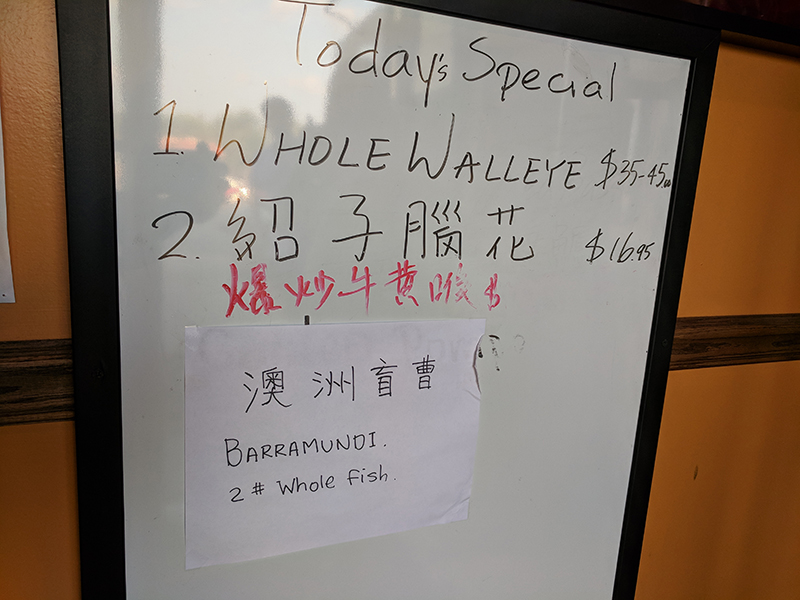 Today's Special
1. WHOLE WALLEYE $35-45.00
2. 紹子腦花 $16.95
爆炒牛黄喉 $
澳洲盲曹
BARRAMUNDI.
2# Whole Fish.